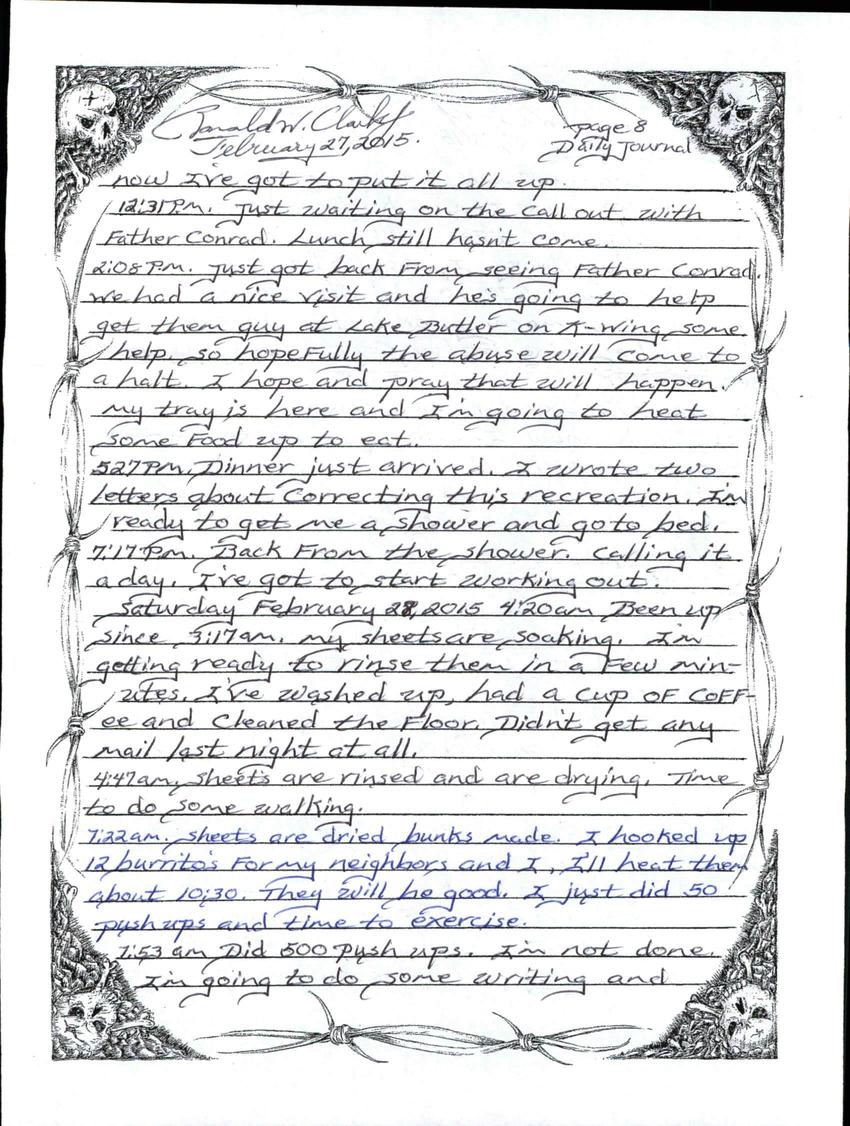 Ronald W. Clark Jr
February 27, 2015.
page 8
Daily Journal
now I've got to put it all up.
12:31 P.M. Just waiting on the call out with
Father Conrad. Lunch still hasn't come.
2:08 P.M. Just got back From seeing Father Conrad.
We had a nice visit and he's going to help
get them guy at Lake Butler on K-Wing some
help. so hopeFully the abuse will come to
a halt. I hope and pray that will happen.
My tray is here and I'm going to heat
some Food up to eat.
5:27 PM. Dinner just arrived. I wrote two
letters about Correcting this recreation. I'm
ready to get me a shower and go to bed.
7:17 P.m. Back From the shower. Calling it
a day. I've got to start working out.
Saturday February 28, 2015 4:20am Been up
since 3:17am. my sheets are soaking. I'm
getting ready to rinse them in a Few min-
utes. I've washed up, had a cup OF COFF-
ee and Cleaned the Floor. Didn't get any
mail last night at all.
4:47am. Sheets are rinsed and are drying. Time
to do some walking.
7:22am. sheets are dried bunks made. I hooked up
12 burrito's For my neighbors and I, I'll heat them
about 10:30. They will be good. I just did 50
push ups and time to exercise.
7:53 am Did 500 Push ups. I'm not done.
I'm going to do some writing and